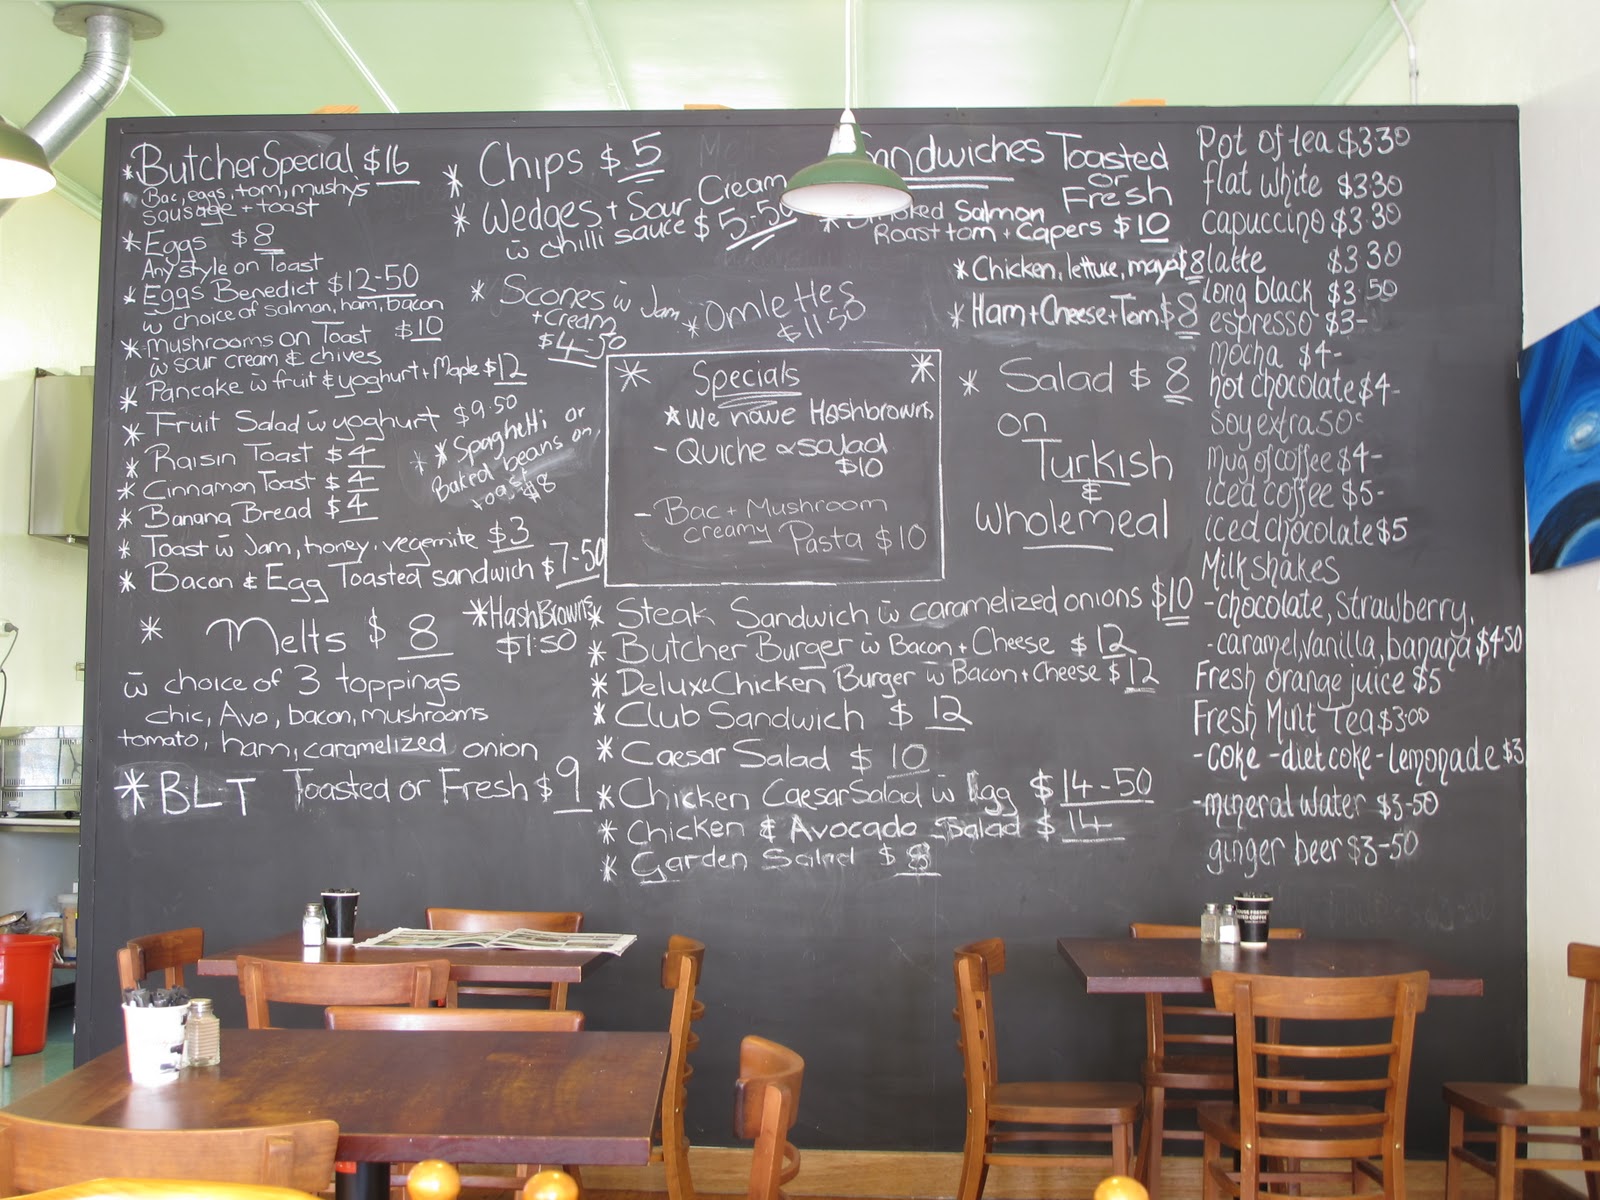 *Butcher Special $16
Bac, eggs, tom, mushys
sausage + toast
*Eggs $8
Any style on Toast
*Eggs Benedict $12-50
w̄ choice of salmon, ham, bacon
*mushrooms on Toast $10
w̄ sour cream & chives
*Pancake w̄ fruit & yoghurt + Maple $12
*Fruit Salad w̄ yoghurt $9.50
*Raisin Toast $4
*Cinnamon Toast $4
*Banana Bread $4
*Toast w̄ Jam, honey, vegemite $3
*Bacon & Egg Toasted sandwich $7-50
**Spaghetti or
Baked beans on
toast $8
*Melts $8
w̄ choice of 3 toppings
chic, Avo, bacon, mushrooms
tomato, ham, caramelized onion
*HashBrowns
$1:50
*BLT Toasted or Fresh $9
*Chips $5
*Wedges + Sour Cream
w̄ chilli sauce $5-50
*Scones w̄ Jam
+ Cream
$4-50
*Omlettes
$11.50
* Specials *
*We have Hashbrowns
- Quiche & salad
$10
- Bac + Mushroom
creamy Pasta $10
*Steak Sandwich w̄ caramelized onions $10
*Butcher Burger w̄ Bacon + Cheese $12
*Deluxe Chicken Burger w̄ Bacon + Cheese $12
*Club Sandwich $12
*Caesar Salad $10
*Chicken Caesar Salad w̄ Egg $14-50
*Chicken & Avocado Salad $14-
*Garden Salad $8
Toasted
or
Fresh
* Salmon
Roast tom + Capers $10
*Chicken, lettuce, mayo $8
*Ham + Cheese + Tom $8
*Salad $8
on
Turkish
&
wholemeal
Pot of tea $3-30
flat white $3-30
capuccino $3-30
latte $3-30
long black $3-50
espresso $3-
mocha $4-
hot chocolate $4-
Soy extra 50c
Mug of coffee $4-
iced coffee $5-
iced chocolate $5
Milkshakes
-chocolate, Strawberry,
-caramel, vanilla, banana $4-50
Fresh orange juice $5
Fresh Mint Tea $3-00
-coke -diet coke -Lemonade $3
-mineral water $3-50
ginger beer $3-50